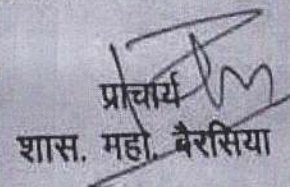 प्राचार्य
शास. महा. बैरसिया